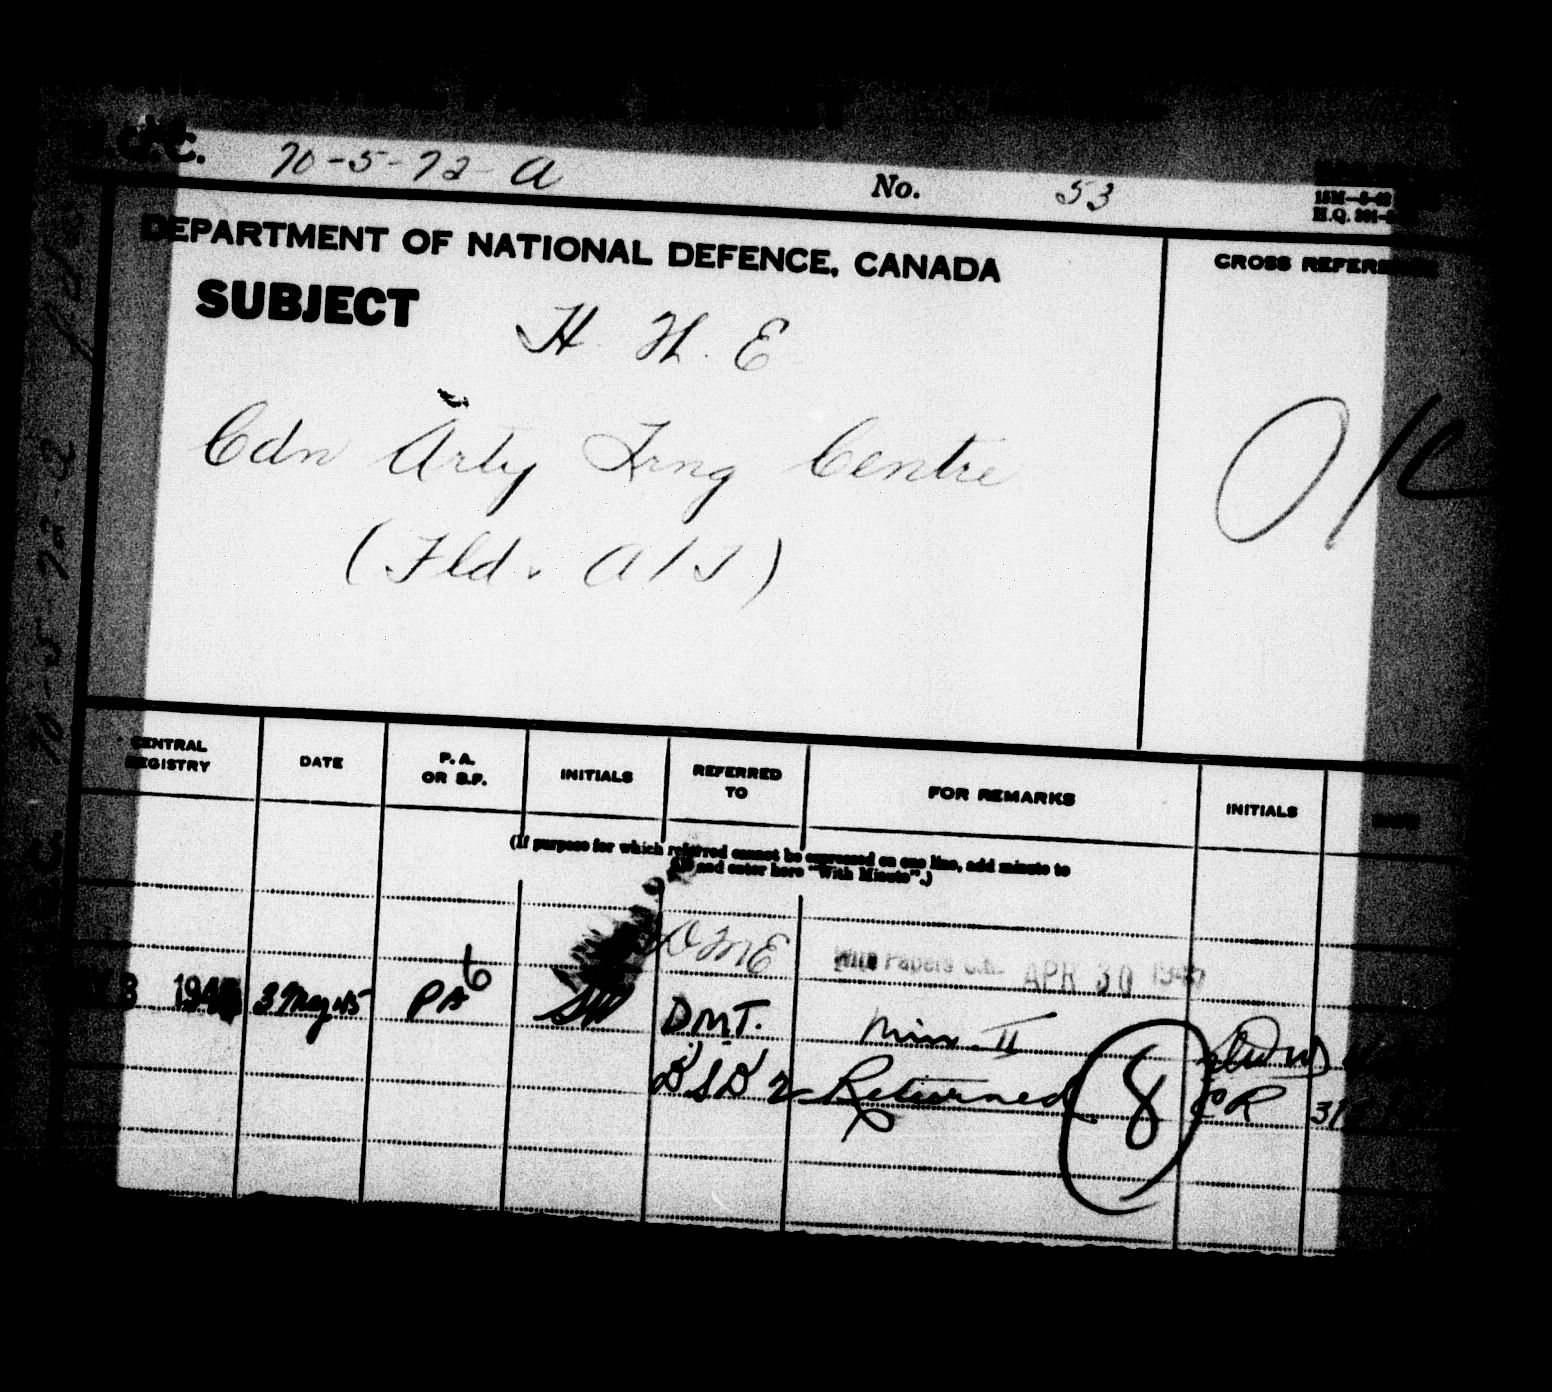 70-5-72-A No. 53
DEPARTMENT OF NATIONAL DEFENCE, CANADA
CROSS REFERENCE
SUBJECT H. W. E
Cdn Arty Trng Centre
(Fld. A/S)
O/C
CENTRAL REGISTRY DATE P. A. OR B.F. INITIALS REFERRED TO FOR REMARKS INITIALS DATE
(If purpose for which referred cannot be expressed on one line, add minute to
file and enter here "With Minute".)
DME With Papers APR 30
3 May 45 PA 6 DMT. Min. II
Returned 8
70-5-72-A